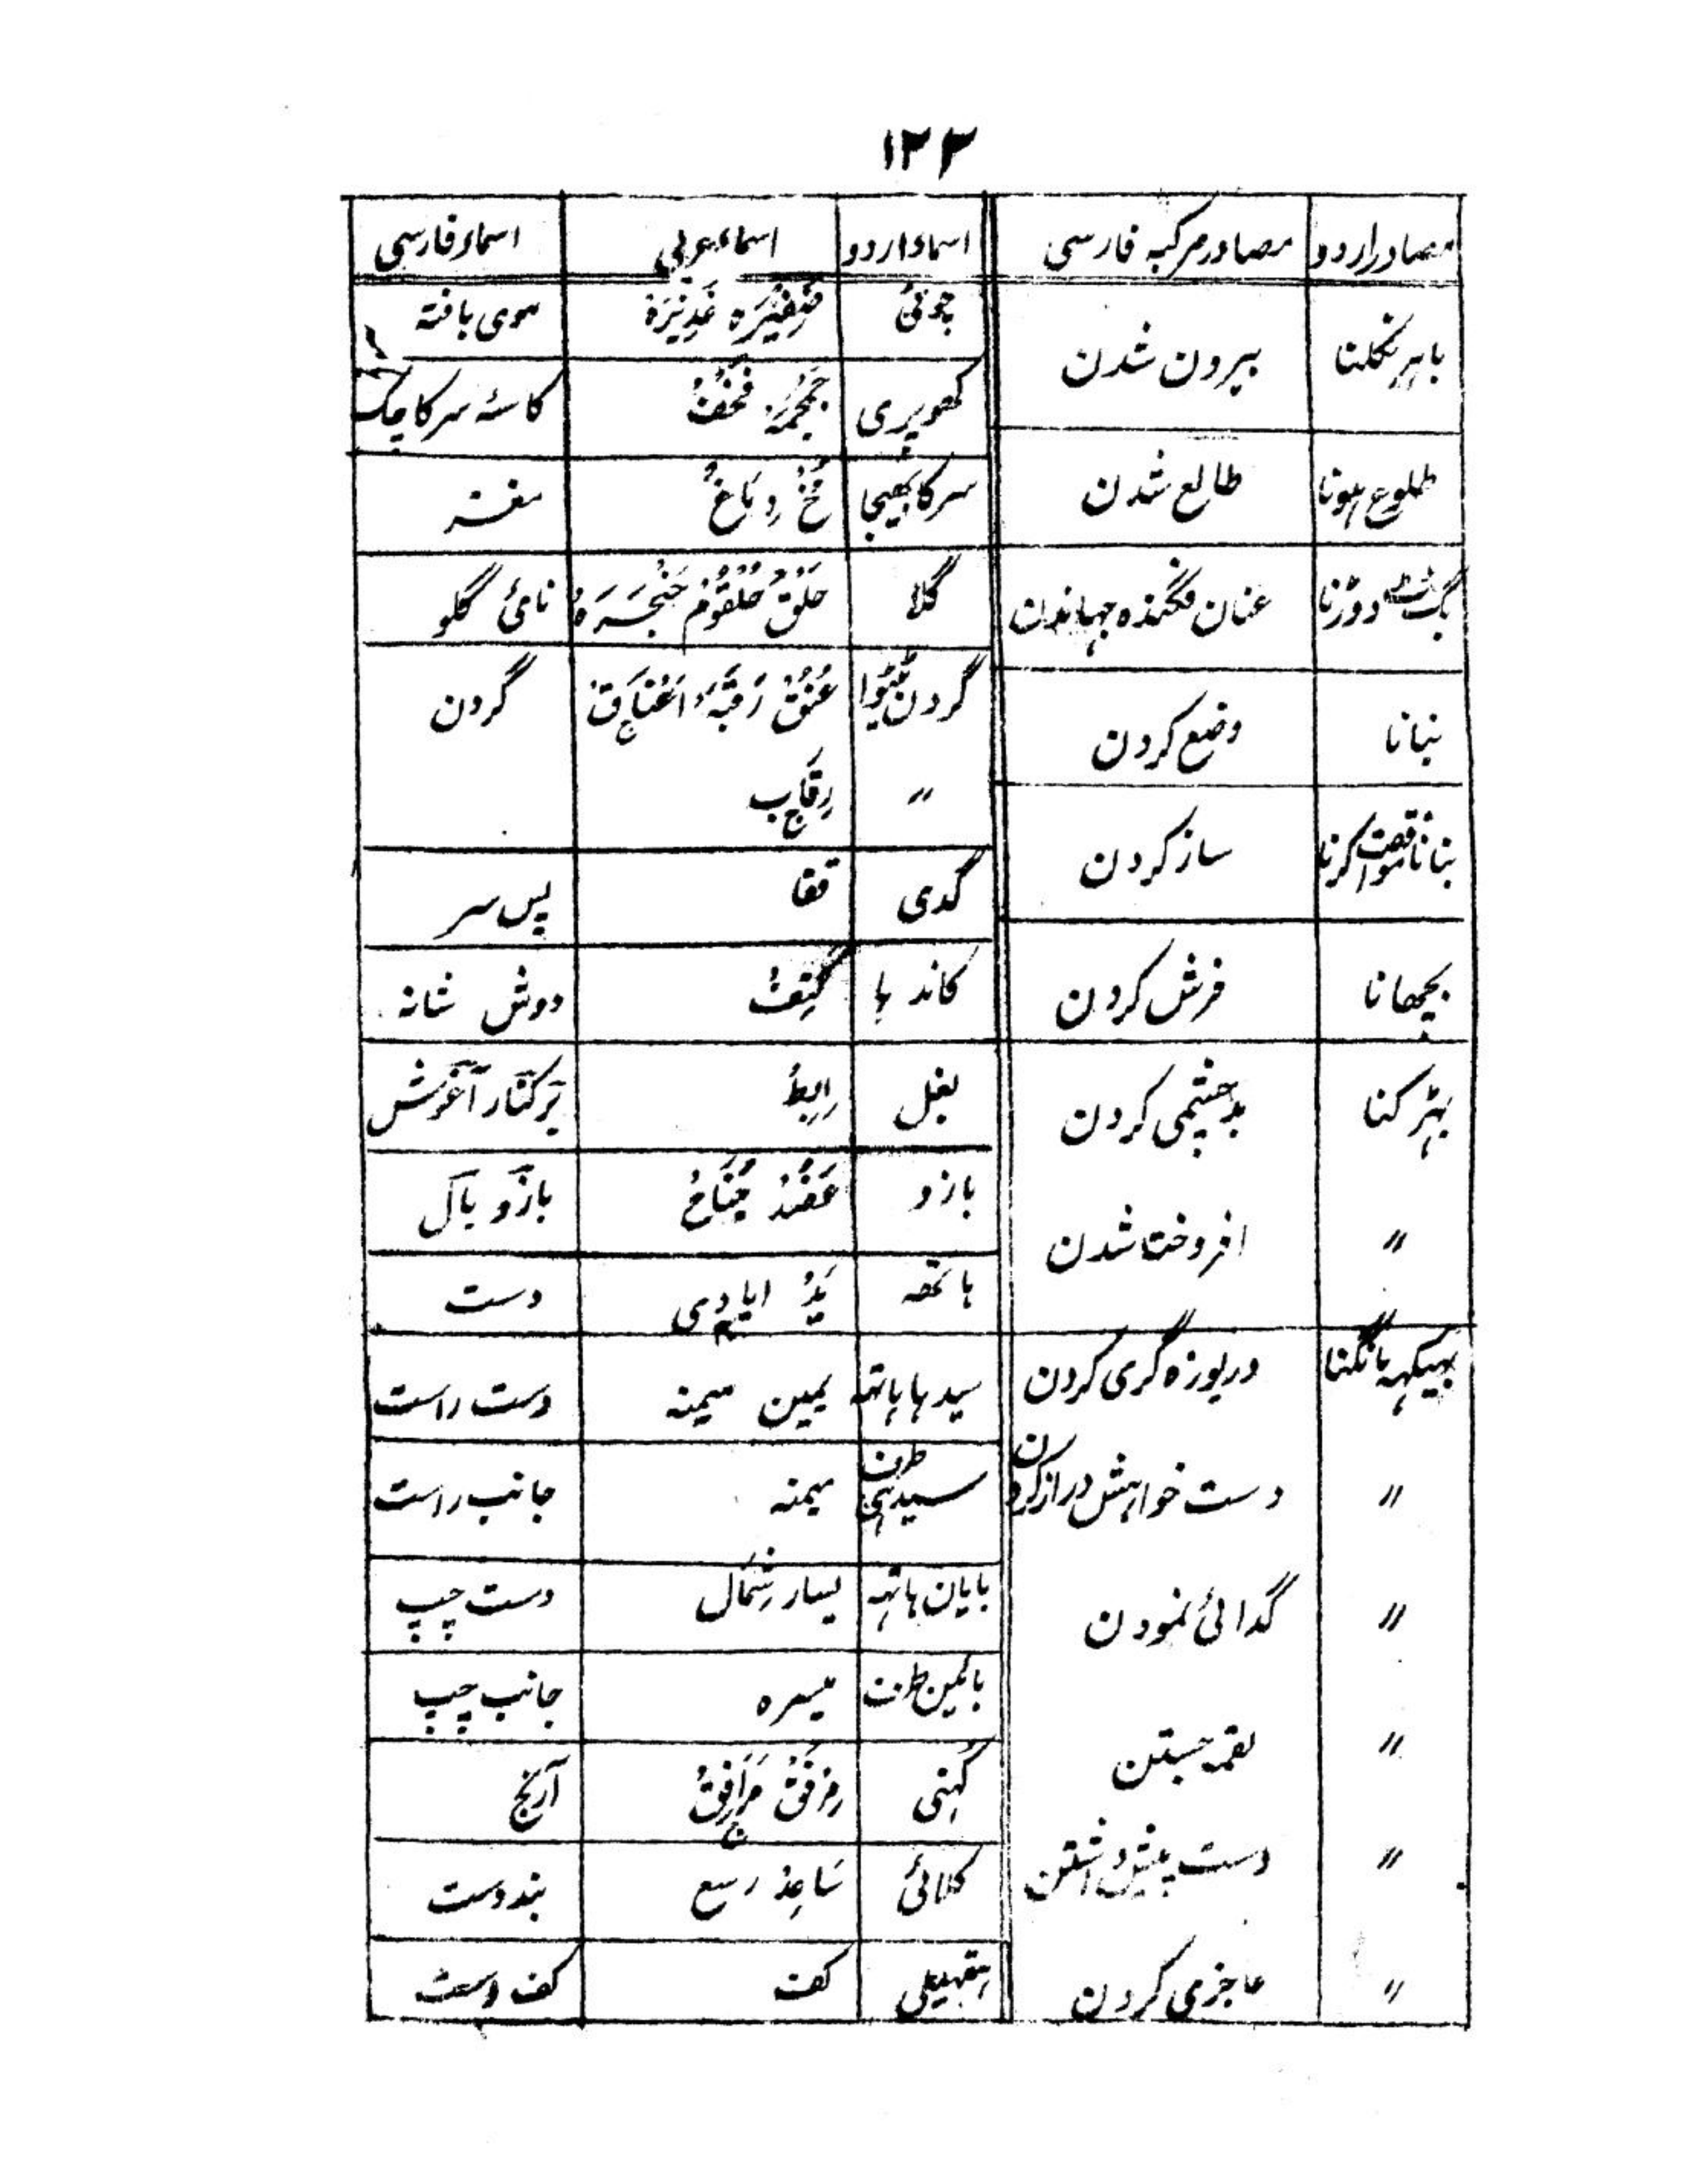 ۱۲۲
مصادر اردو	مصادر مرکبہ فارسی
باہر نکلنا	بیرون شدن
طلوع ہونا	طالع شدن
بگ ٹٹ دوڑنا	عنان فگندہ جہاندن
بنانا	وضع کردن
بنانا موافقت کرنا	ساز کردن
بچھانا	فرش کردن
بہڑکنا	بدچشمی کردن
〃	افروختا شدن
بہیکہہ مانگنا	دریوزہ گری کردن
〃	دست خواہش دراز کردن
〃	گدائی نمودن
〃	لقمہ جستن
〃	دست پیش داشتن
〃	عاجزی کردن
اسماء اردو	اسماء عربی	اسماء فارسی
چوٹی	ضَفِیْرَہ غَدِیْرَۃ	موی بافتہ
کھوپری	جُمْجُمَہ قحفٌ	کاسۂ سر کاچک
سر کا بھیجا	مُخٌ دِمَاغٌ	مغز
گلا	حَلْقٌ حُلْقُوْمٌ حَنْجَرَہٌ	نائ گلو
گردن ٹیٹوا	عُنُقٌ رَقَبَہٌ اَعْنَاق ج	گردن
〃	رِقَاب ج
گدی	قفا	پس سر
کاندہا	کَتِفٌ	دوش شانہ
بغل	اِبِطٌ	بَر کنَار آغوش
بازو	عَضُدٌ جَنَاحٌ	بازو بال
ہاتھ	یَدٌ ایادی ج	دست
سیدہا ہاتہ	یمین میمنہ	دست راست
سیدہی طرف	میمنہ	جانب راست
بایان ہاتہ	یسار شِمَال	دست چپ
بائین طرف	میسرہ	جانب چپ
کُہنی	مِرْفَقٌ مَرَافِقٌ ج	آرنج
کلائی	سَاعِدٌ رسع	بند دست
ہتھیلی	کف	کف دست